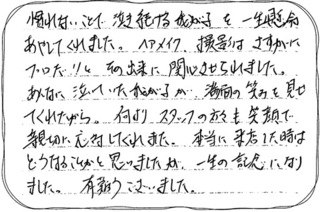 慣れないことで泣き続ける我が子を一生懸命
あやしてくれました。ヘアメイク、撮影はさすがに
プロだ!!と その出来に関心させられました。
あんなに泣いていた我が子が 満面の笑みを見せ
てくれたから。何より スタッフの方も笑顔で
親切に応対してくれました。本当に来店した時は
どうなることかと思いましたが、一生の記念になり
ました。有難うございました。